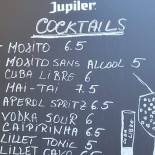 Jupiler
COCKTAILS
MOJITO 6.5
MOJITO SANS ALCOOL 5
CUBA LIBRE 6
MAI-TAI 7.5
APEROL SPRITZ 6.5
VODKA SOUR 6
CAIPIRINHA 6.5
LILLET TONIC 5
LILLET CAVA